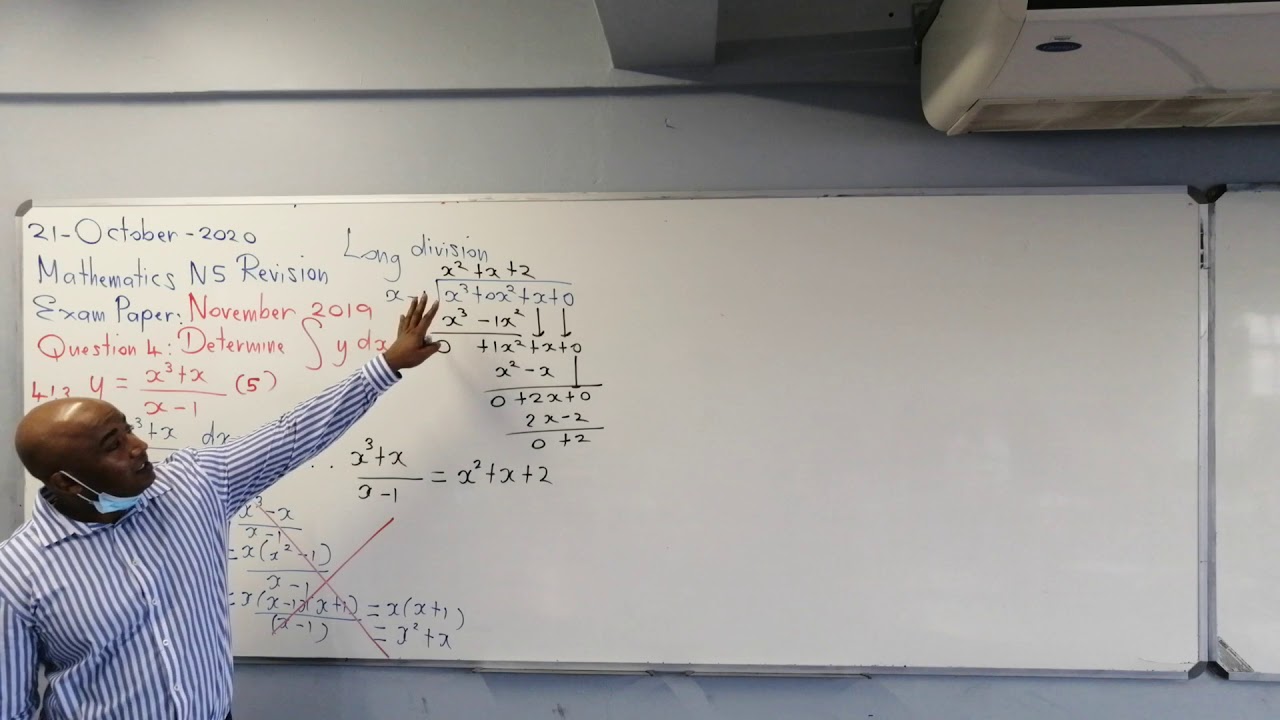 21-October-2020
Mathematics N5 Revision
Exam Paper: November 2019
Question 4: Determine ∫ y dx
4.1.3 y = x³+x / x-1 (5)
x³+x dx
Long division
x²+x+2
x-1 x³+0x²+x+0
x³-1x²
0 +1x²+x+0
x²-x
0+2x+0
2x-2
0+2
x³+x / x-1 = x²+x+2
x³-x / x-1
= x(x²-1) / x-1
= x(x-1)(x+1) / (x-1) = x(x+1)
= x²+x